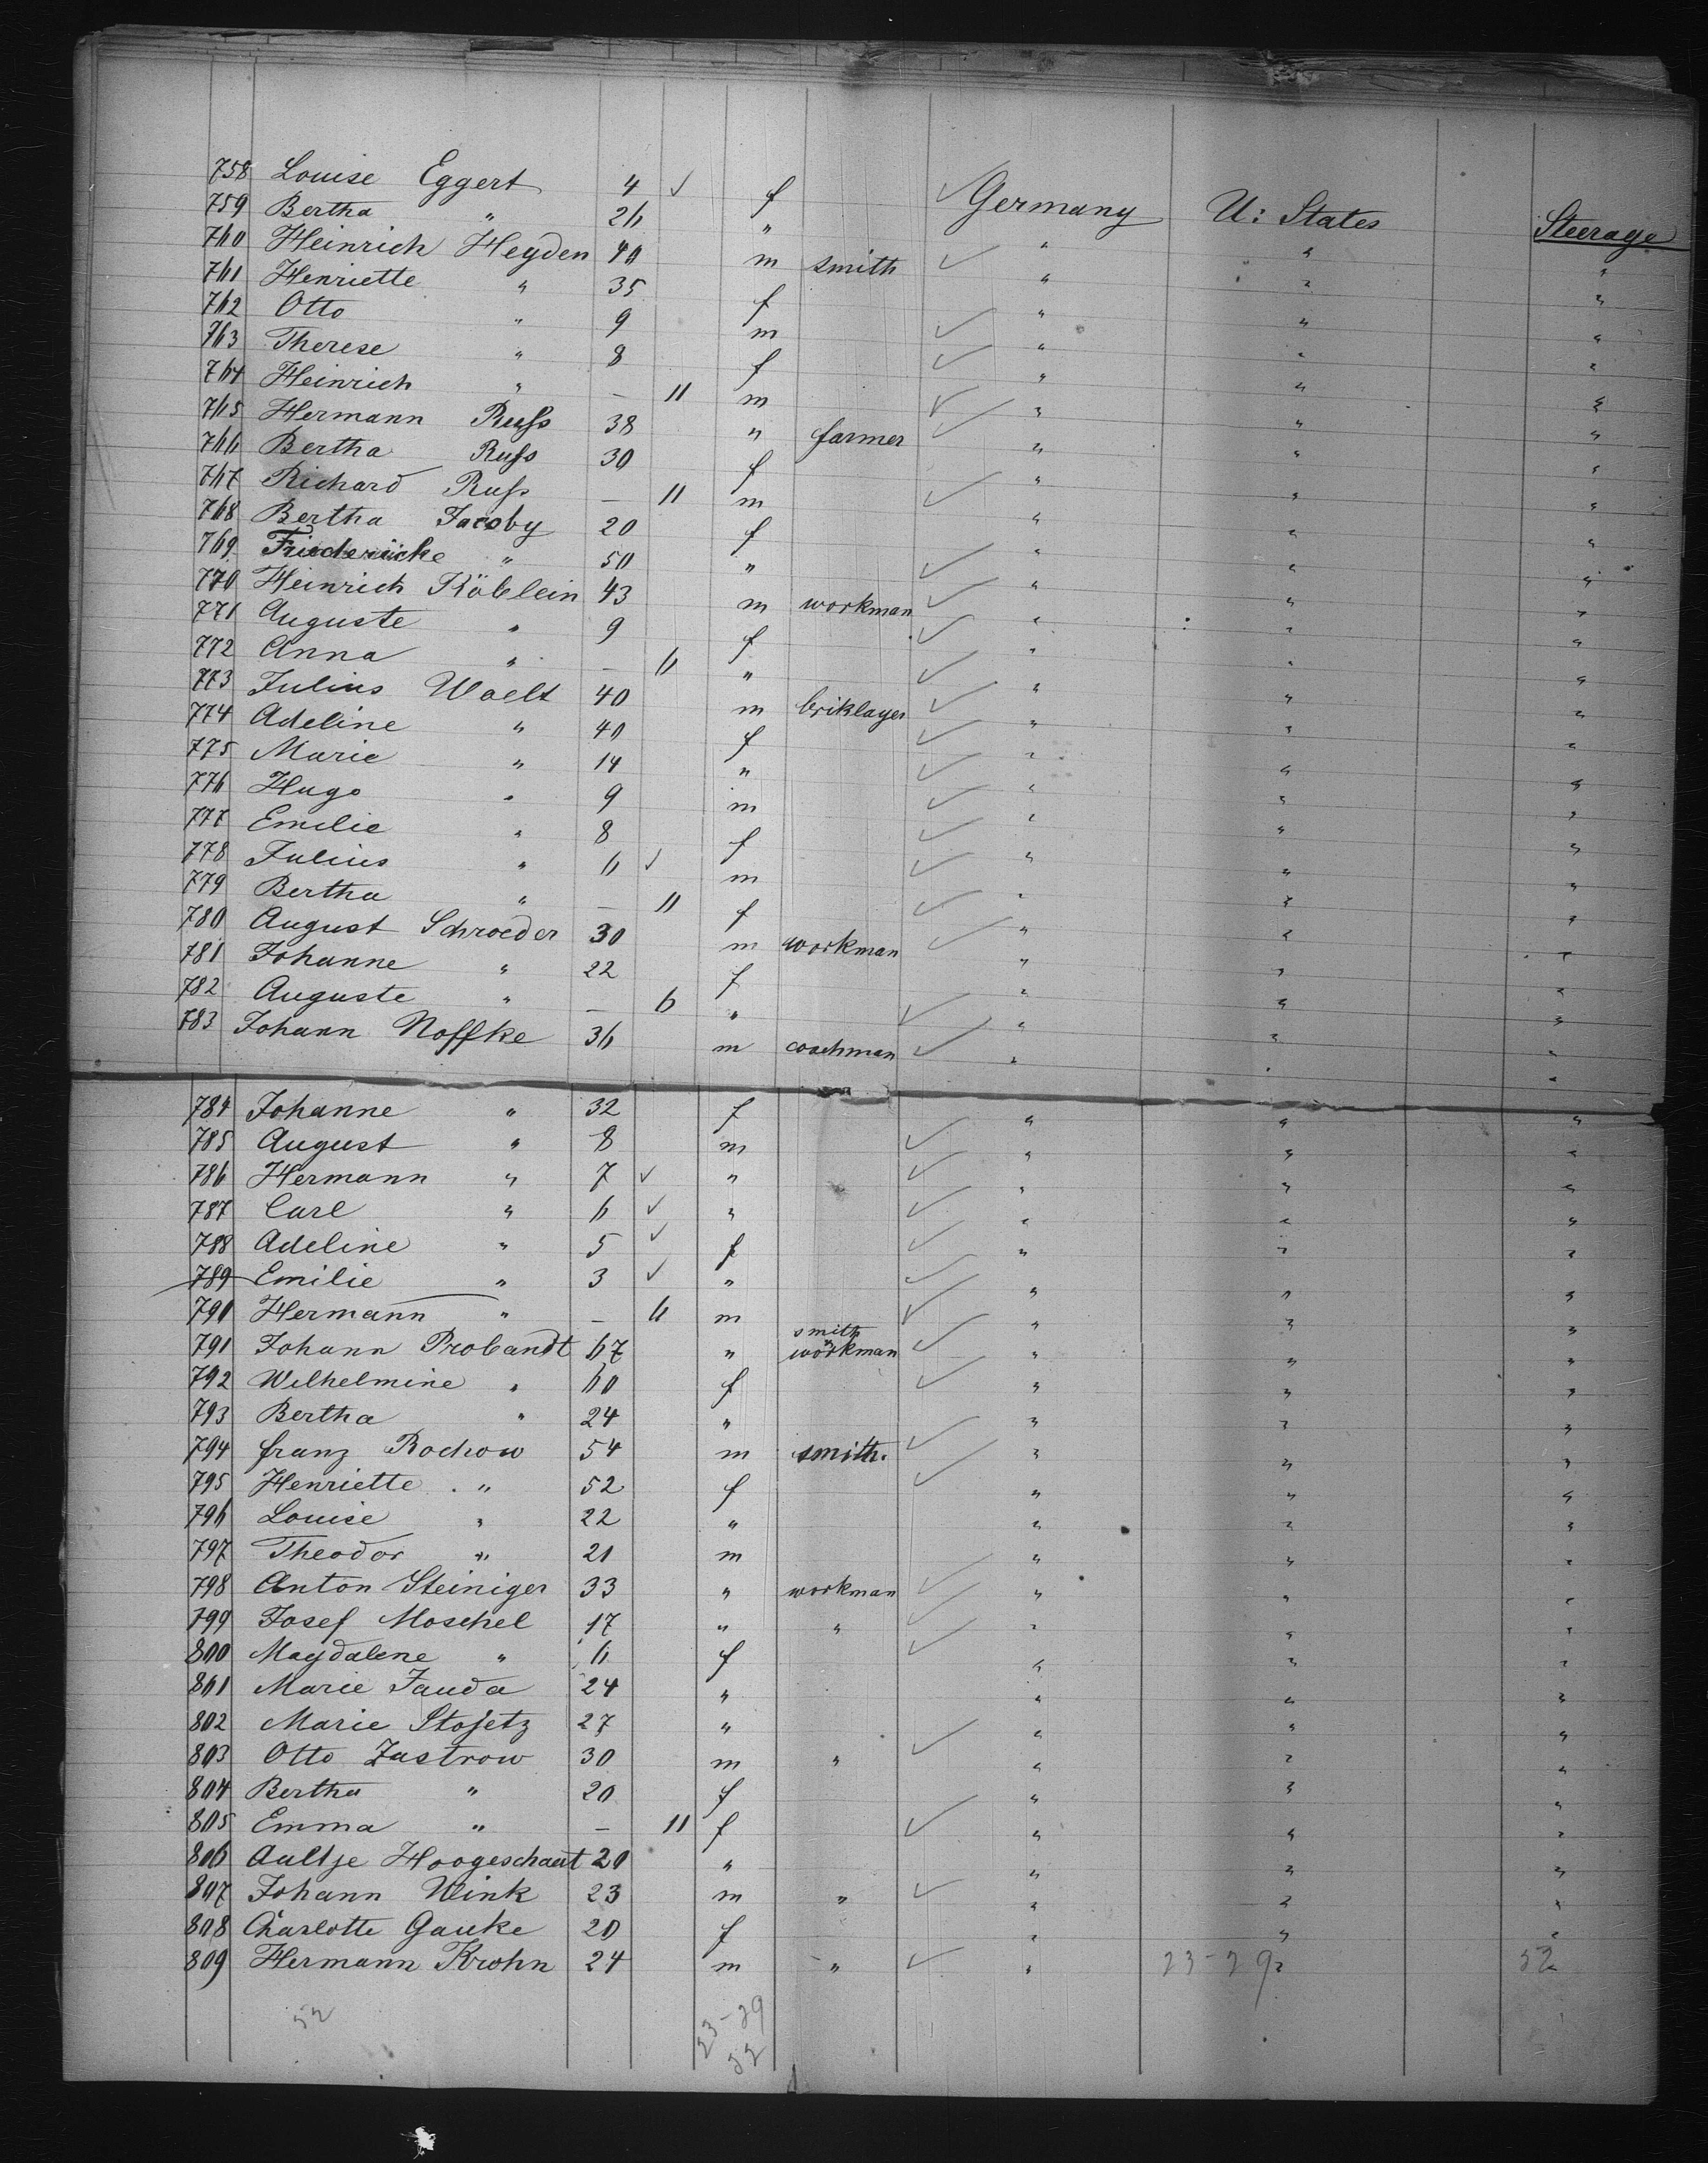 758 Louise Eggert 4 ✓ f ✓ Germany U: States Steerage
759 Bertha " 26 " " " "
760 Heinrich Heyden 40 m smith ✓ " " "
761 Henriette " 35 f " " "
762 Otto " 9 m ✓ " " "
763 Therese " 8 f ✓ " " "
764 Heinrich " — 11 m ✓ " " "
765 Hermann Russ 38 " farmer ✓ " " "
766 Bertha Russ 30 f " " "
767 Richard Russ — 11 m ✓ " " "
768 Bertha Jacoby 20 f " " "
769 Friederücke " 50 " ✓ " " "
770 Heinrich Köblein 43 m workman ✓ " " "
771 Auguste " 9 f ✓ " " "
772 Anna " — 6 " ✓ " " "
773 Julius Woelt 40 m briklayer ✓ " " "
774 Adeline " 40 f ✓ " " "
775 Marie " 14 " ✓ " " "
776 Hugo " 9 m ✓ " " "
777 Emilie " 8 f ✓ " " "
778 Julius " 6 ✓ m ✓ " " "
779 Bertha " — 11 f ✓ " " "
780 August Schroeder 30 m workman ✓ " " "
781 Johanne " 22 f " " "
782 Auguste " — 6 " ✓ " " "
783 Johann Noffke 36 m coachman ✓ " " "
784 Johanne " 32 f " " "
785 August " 8 m ✓ " " "
786 Hermann " 7 ✓ " ✓ " " "
787 Carl " 6 ✓ " ✓ " " "
788 Adeline " 5 ✓ f ✓ " " "
789 Emilie " 3 ✓ " ✓ " " "
790 Hermann " — 6 m ✓ " " "
smith
791 Johann Probandt 67 " workman ✓ " " "
792 Wilhelmine " 60 f ✓ " " "
793 Bertha " 24 " ✓ " " "
794 franz Rochow 54 m smith. ✓ " " "
795 Henriette " 52 f ✓ " " "
796 Louise " 22 " " " "
797 Theodor " 21 m " " "
798 Anton Steiniger 33 " workman ✓ " " "
799 Josef Moschel 17 " " ✓ " " "
800 Magdalene " 6 f ✓ " " "
801 Marie Janda 24 " " " "
802 Marie Stosetz 27 " " " "
803 Otto Zastrow 30 m " ✓ " " "
804 Bertha " 20 f " " "
805 Emma " — 11 f ✓ " " "
806 Aaltje Hoogeschaut 20 " " " "
807 Johann Wink 23 m " ✓ " " "
808 Charlotte Gauke 20 f " " "
809 Hermann Krohn 24 m " ✓ " 23-29 " 52 "
52 23-29
52